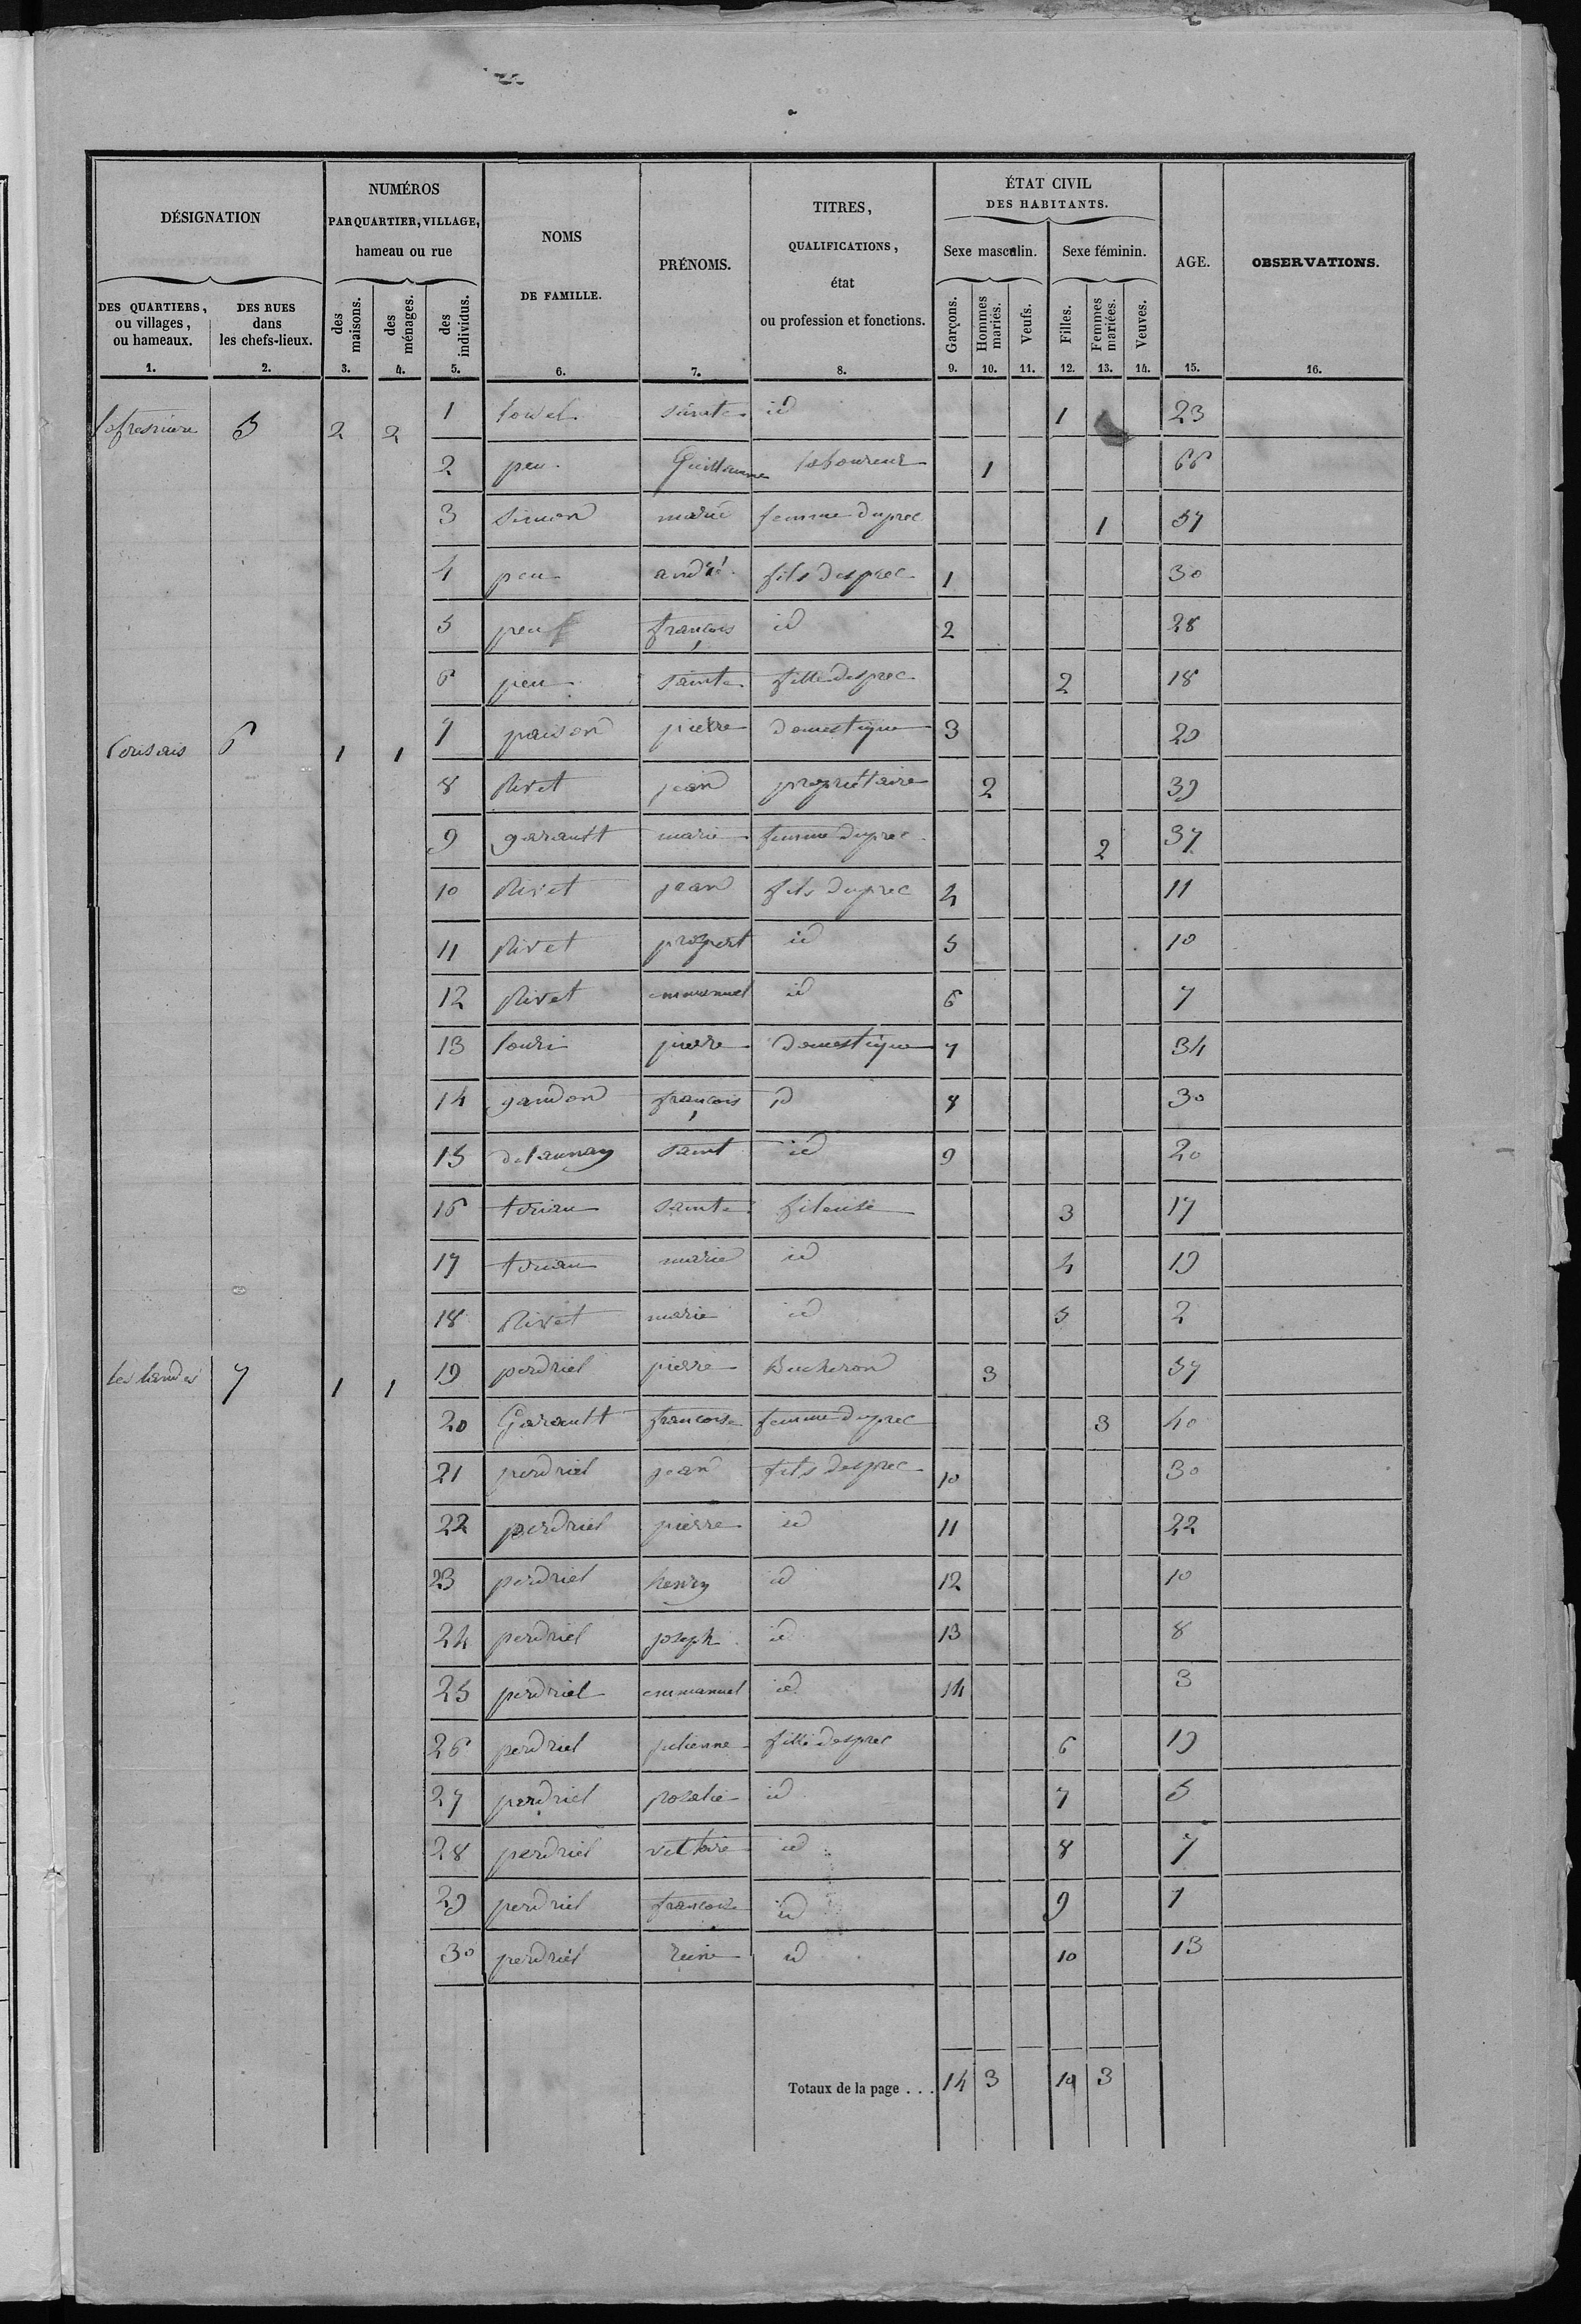 DÉSIGNATION
NUMÉROS
PAR QUARTIER, VILLAGE,
hameau ou rue
NOMS
DE FAMILLE.
PRÉNOMS.
TITRES,
QUALIFICATIONS,
état
ou profession et fonctions.
ÉTAT CIVIL
DES HABITANTS.
Sexe masculin.
Sexe féminin.
AGE.
OBSERVATIONS.
DES QUARTIERS,
ou villages,
ou hameaux.
DES RUES
dans
les chefs-lieux.
des maisons.
des ménages.
des individus.
Garçons.
Hommes mariés.
Veufs.
Filles.
Femmes mariées.
Veuves.
1. 2. 3. 4. 5. 6. 7. 8. 9. 10. 11. 12. 13. 14. 15. 16.
5 2 2 1 sainte id 1 23
2 peu Guillaume laboureur 1 66
3 Simon marie femme du prec 1 57
4 peu andré fils des prec 1 30
5 peu françois id 2 28
6 peu Sainte fille des prec 2 18
7 paison pierre domestique 3 20
6 1 1
8 Rivet jean propriétaire 2 39
9 garault marie femme du prec 2 37
10 Rivet jean fils du prec 4 11
11 Rivet prospert id 5 10
12 Rivet emmanuel id 6 7
13 pierre domestique 7 34
14 gandon françois id 8 30
15 delaunay Saint id 9 20
16 Sainte fileuse 3 17
17 marie id 4 19
18 Rivet marie id 5 2
les landes 7 1 1 19 perdriel pierre Bucheron 3 57
20 Garault francoise femme du prec 3 40
21 perdriel jean fils des prec 10 30
22 perdriel pierre id 11 22
23 perdriel henry id 12 10
24 perdriel joseph id 13 8
25 perdriel emmanuel id 14 3
26 perdriel julienne fille des prec 6 19
27 perdriel rosalie id 7 5
28 perdriel victoire id 8 7
29 perdriel francoise id 9 1
30 perdriel reine id 10 13
Totaux de la page . . . 14 3 10 3